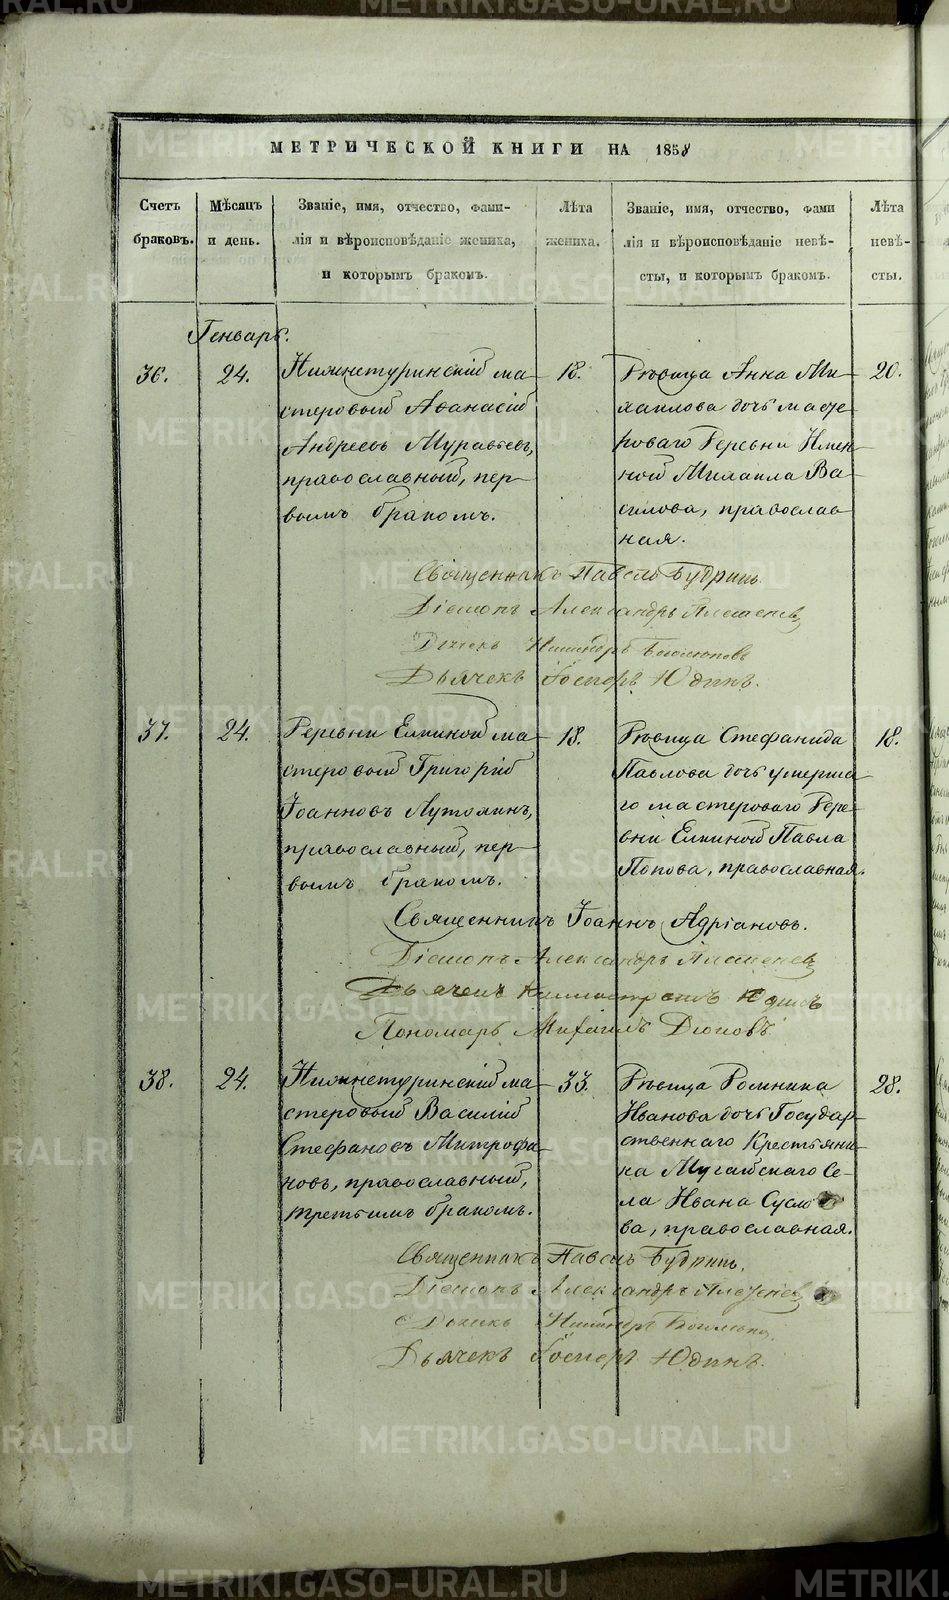 МЕТРИЧЕСКОЙ КНИГИ НА 1858
Счетъ браковъ.
Мѣсяцъ и день.
Званіе, имя, отчество, фами-
лія и вѣроисповѣданіе жениха,
и которымъ бракомъ.
Лѣта жениха.
Званіе, имя, отчество, фами
лія и вѣроисповѣданіе невѣ-
сты, и которымъ бракомъ.
Лѣта невѣ-
сты.
Генварь.
36.
24.
Нижнетуринскій ма-
стеровый Аѳанасій
Андреевъ Муравьевъ,
православный, пер-
вымъ бракомъ.
18.
Дѣвица Анна Ми-
хаилова дочь масте-
роваго Деревни Имен-
ной Михаила Ва-
силова, православ-
ная.
20.
Священникъ Павелъ Будринъ.
Діаконъ Александръ
Дьячекъ
Дьячекъ Іосифъ Юдинъ.
37.
24.
Деревни Елкиной ма-
стеровый Григорій
Іоанновъ
православный, пер-
вымъ бракомъ.
18.
Дѣвица Стефанида
Павлова дочь умерша-
го мастероваго Дере-
вни Елкиной Павла
Попова, православная.
18.
Священникъ Іоаннъ Адріановъ.
Діаконъ Александръ
Дьячекъ
Пономарь Михаилъ
38.
24.
Нижнетуринскій ма-
стеровый Василій
Стефановъ Митрофа-
новъ, православный,
третьимъ бракомъ.
33.
Дѣвица Домника
Иванова дочь Государ-
ственнаго Крестьяни-
на Мугайскаго Се-
ла Ивана Сусло
ва, православная.
28.
Священникъ Павелъ Будринъ.
Діаконъ Александръ
Дьячекъ Іосифъ Юдинъ.
METRIKI.GASO-URAL.RU